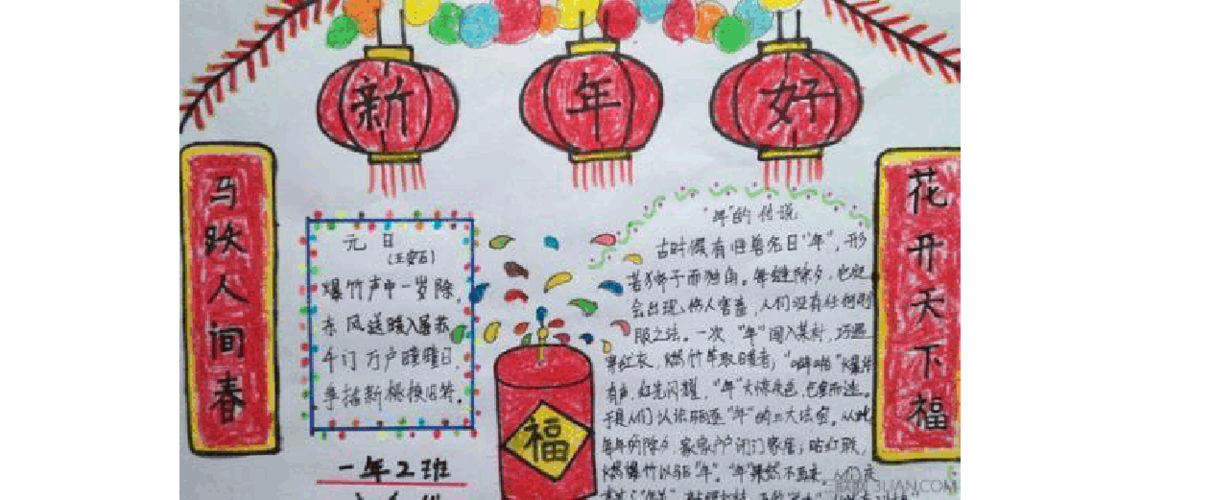 新年好
马跃人间春
花开天下福
元日
(王安石)
爆竹声中一岁除,
东风送暖入屠苏
千门万户曈曈日,
争插新桃换旧符。
福
一年2班
"年"的传说
古时候有怪兽名曰"年",形
若狮子而独角。每逢除夕,它定
会出现,伤人害畜,人们没有任何
服之法。一次"年"闯入某村,巧遇
穿红衣,燃竹取暖者;"噼啪"爆
有声,红光闪耀,"年"大惊失色,
于是人们认识"年"的三大法宝。从此
每年的除夕,家家户户闭门家居;贴红联,
燃爆竹以驱"年"。"年"果然不再来。人们
3LIAN.COM